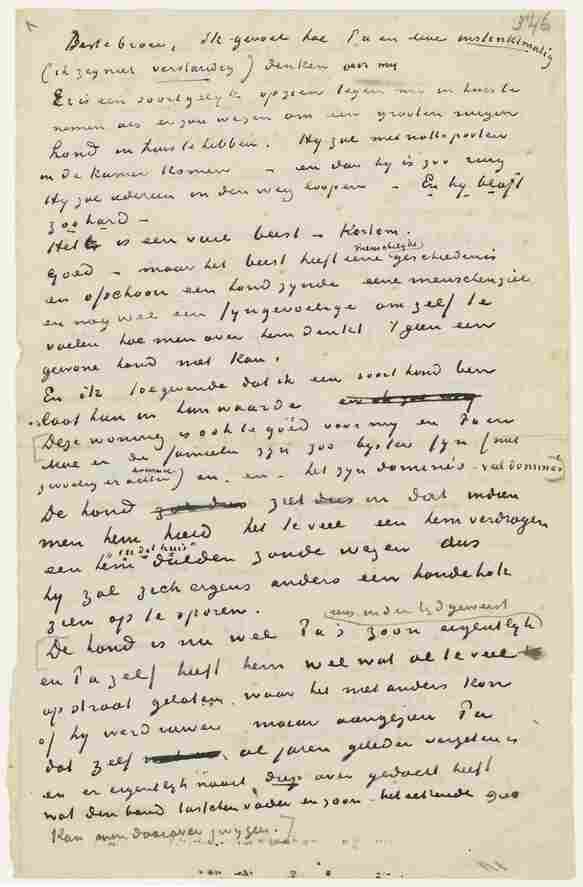 346
Beste broer, Ik gevoel hoe Pa en Moe instinktmatig
(ik zeg niet verstandig) denken over my
Er is een soortgelyk opzien tegen my in huis te
nemen als er zou wezen om een grooten ruigen
hond in huis te hebben. Hy zal met natte pooten
in de kamer komen – en dan hy is zoo ruig
Hy zal iedereen in den weg loopen – En hy blaft
zoo hard –
Het is een vuil beest – Kortom.
Goed – maar het beest heeft eene menschelyke geschiedenis
en ofschoon een hond zynde eene menschenziel
en nog wel een fyngevoelige om zelf te
voelen hoe men over hem denkt 't geen een
gewone hond niet kan.
En ik toegevende dat ik een soort hond ben
laat hun in hun waarde
Deze woning is ook te goed voor my en Pa en
Moe en de familie zyn zoo byster fyn (niet
gevoelig er achter) en – en – het zyn dominés – veel dominés
De hond ziet in dat indien
men hem hield het te veel een hem verdragen
een hem dulden "in dit huis" zonde wezen dus
hy zal zich ergens anders een hondehok
zien op te sporen.
De hond is nu wel Pa's zoon eigentlyk
en Pa zelf heeft hem wel wat al te veel
op straat gelaten waar het niet anders kon
of hy werd ruwer maar aangezien Pa
dat zelf al jaren geleden vergeten is
en er eigentlyk nooit diep over gedacht heeft
wat den band tusschen vader en zoon
kan men daarover zwygen.]